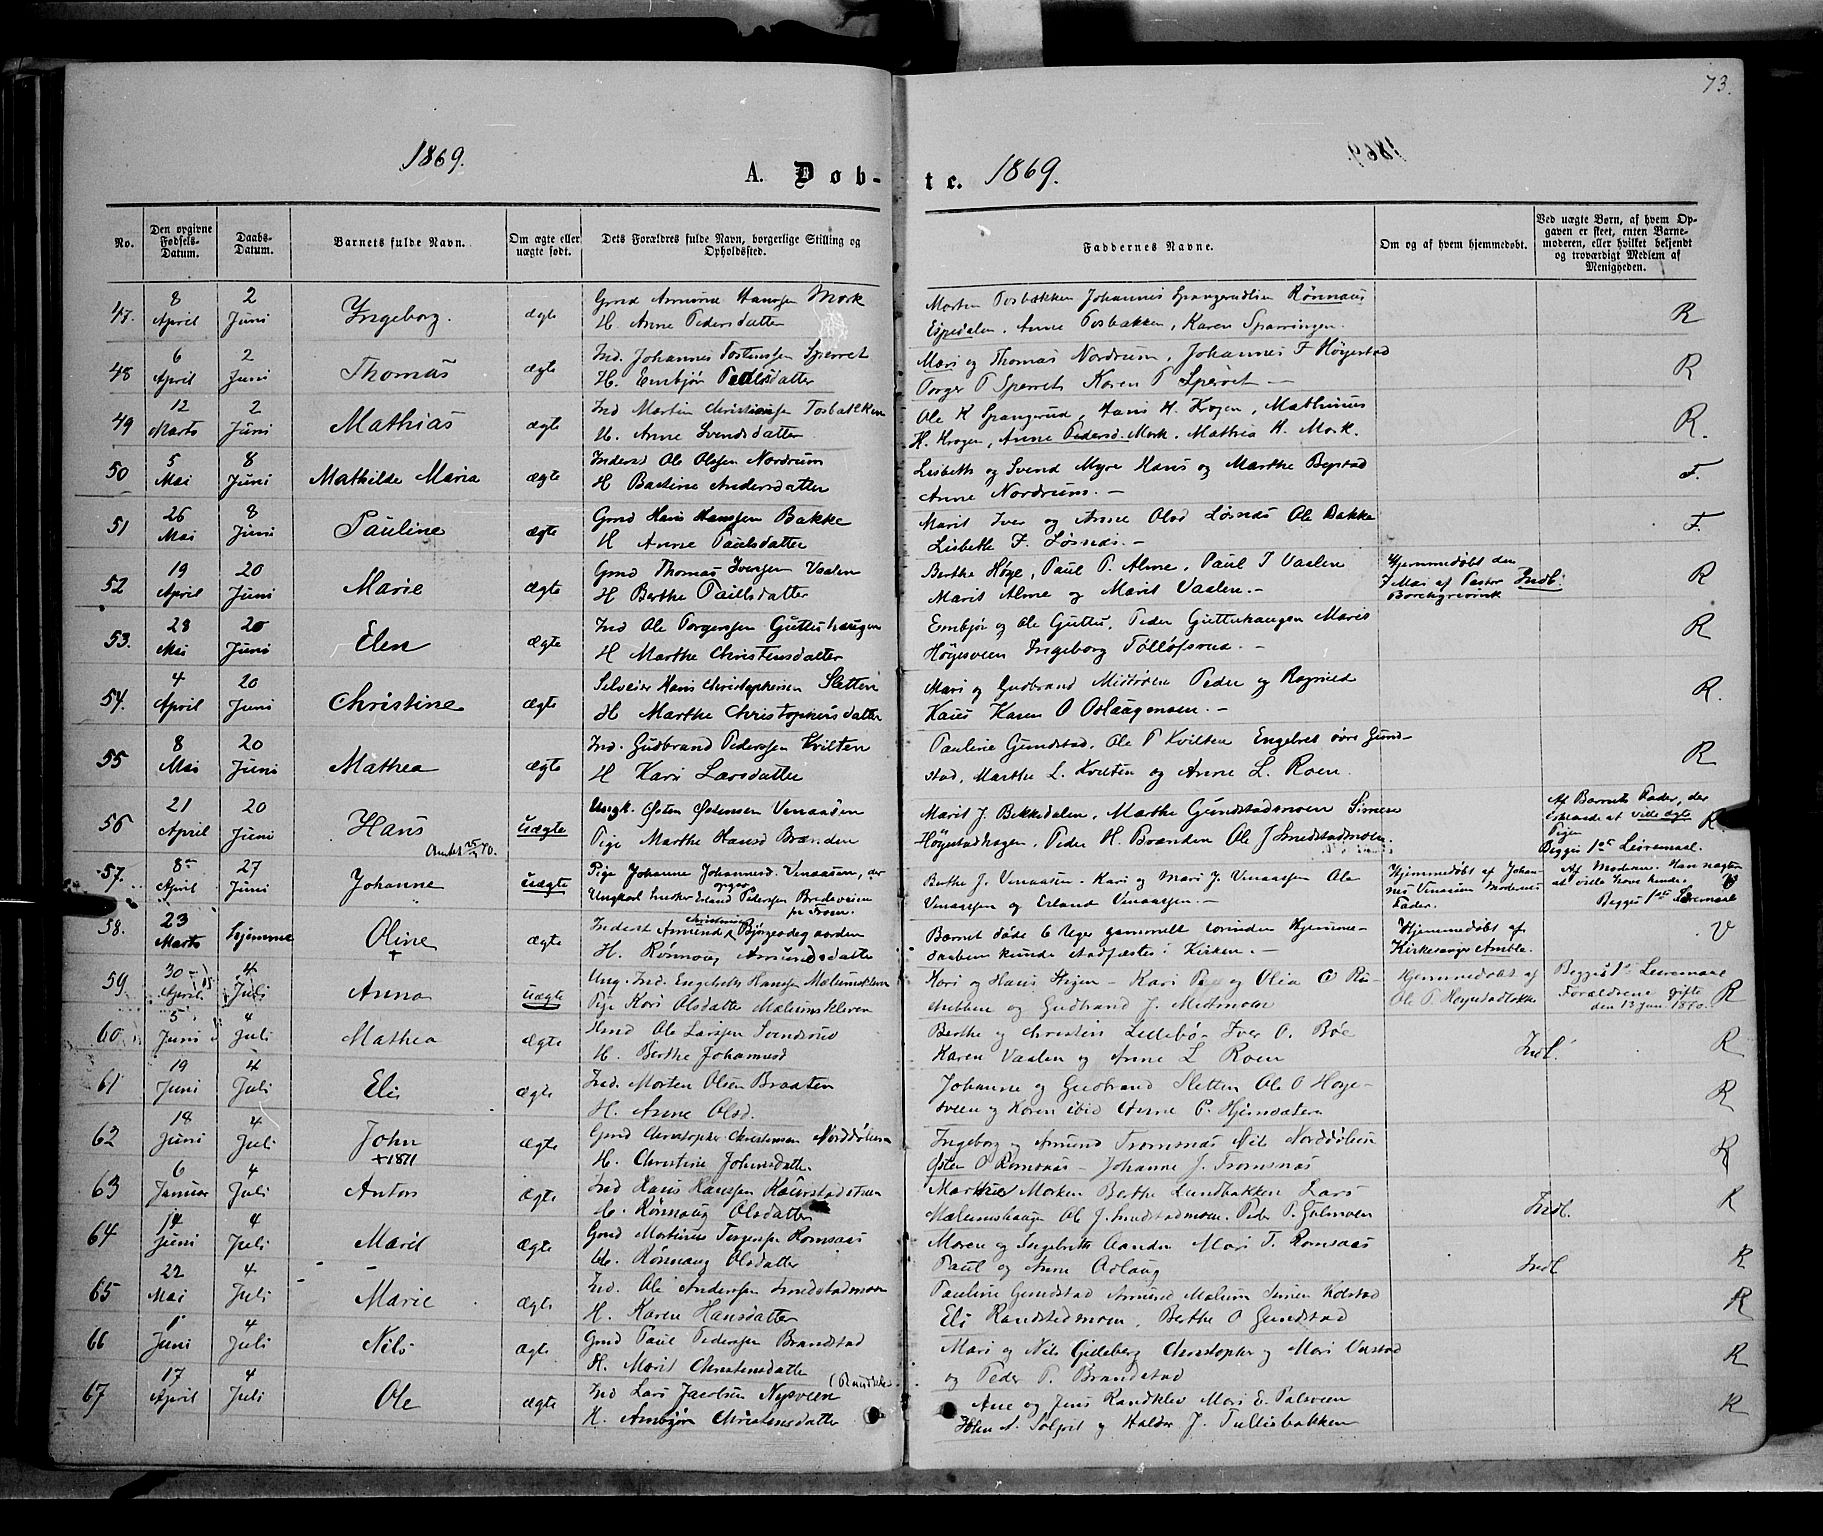 73.
1869.
A. Døb-
te. 1869.
No.
Den opgivne Fødsels-Datum.
Daabs-Datum.
Barnets fulde Navn.
Om ægte eller uægte født.
Dets Forældres fulde Navn, borgerlige Stilling og Opholdssted.
Faddernes Navne.
Om og af hvem hjemmedøbt.
Ved uægte Børn, af hvem Opgaven er skeet, enten Barnemoderen, eller hvilket bekjendt og troværdigt Medlem af Menigheden.
47. 8 April 2 Juni Ingeborg. ægte Gmd Amund Hansen Mork
H. Anne Pedersdatter
Morten Tosbækken Johannes Rønnaug
Espedalen, Anne Tosbækken, Karen
R
48 6 April 2 Juni Thomas ægte Ind. Johannes Tostensen Sperret
H. Embjør Pedersdatter
Mari og Thomas Nordrum, Johannes F Høgestad
Torger T Sperret Karen T Sperret
R
49 12 Marts 2 Juni Mathias ægte Ind Martin Christiansen Tosbækken
H. Anne Svendsdatter
Ole K Spangrud, Hans H. Krogen, Mathinus
H. Krogen, Anne Pedersd. Mork, Mathea H. Mork.
R.
50 5 Mai 8 Juni Mathilde Maria ægte Inderst Ole Olesen Nordrum
H Bastine Andersdatter
Lisbeth og Svend Myre Hans og Marthe
Anne Nordrum. -
F.
51 26 Mai 8 Juni Pauline ægte Gmd Hans Hansen Bakke
H Anne Paulsdatter
Marit Iver og Anne Olsd Løsnæs Ole Bakke
Lisbeth F. Løsnæs. -
F.
52 19 April 20 Juni Marie ægte Gmd Thomas Iversen Vaalen
H Berthe Paulsdatter
Berthe Høge, Paul P. Alme, Paul I Vaalen
Marit Alme og Marit Vaalen. -
Hjemmedøbt den
7 Mai af Pastor
Indl.
R
53. 28 Mai 20 Juni Elen ægte Ind Ole Torgersen Guttuhaugen
H Marthe Christensdatter
Embjør og Ole Guttu, Peder Guttuhaugen Marit
Høgesveen Ingeborg Tollofsrud. -
R
54. 4 April 20 Juni Christine ægte Selveier Hans Christophersen Sletten
H Marthe Christophersdatter
Mari og Gudbrand Midtmoen Peder og Ragnild
Karen O
R.
55 8 Mai 20 Juni Mathea ægte Ind. Gudbrand Pedersen Kvilten
H Kari Larsdatter
Pauline Gundstad, Ole P Kvilten Engebret øvre Gund-
stad, Marthe L. Kvilten og Anne L. Roen.
R
56 21 April 20 Juni Hans uægte Ungk. Østen Østensen Venaasen
Pige Marthe Hansd Brænden
Marit J. Bekkedalen, Marthe Gundstadmoen Simen
Høgestadhagen, Peder H. Brænden Ole J Smedstadmoen.
Af Barnets Fader, der
at ville ægte
Pigen
Begges 1st Leiermaal.
R
57. 8 April 27 Juni Johanne uægte Pige Johanne Johannesd. Venaasen,
Ungkarl Erland Pedersen Bredeveien
fr Froen.
Berthe J. Venaasen. Kari og Mari J Venaasen Ole
Venaasen og Erland Venaasen. -
Hjemmedøbt af Johan-
nes Venaasen Moderens
Fader.
Af Moderen. Han nægter
at ville have hende
Begges 1ste Leiermaal
58. 23 Marts Hjemme Oline + ægte Inderst Amund Christensen Bjørgeødegaarden
H. Rønnoug Amundsdatter
Barnet døde 6 Uger gammelt forinden Hjemme-
daaben kunde stadfæstes i Kirken. -
Hjemmedøbt af
Kirkesanger Amble.
V
59 30 April 4 Juli Anna uægte Ung. Ind. Engebret Hansen Mælumskleven
Pige Kari Olsdatter Mælumskleven
og Gudbrand J. Midtmoen
Hjemmedøbt af
Ole P. Høgestadløkke
Begges 1st Leiermaal
Forældrene gifte
den 13 Juni 1870.
R
60 5 Juni 4 Juli Mathea ægte Gmd Ole Larsen Svendsrud
H. Berthe Johannesd
Berthe og Christen Lillebø Iver O. Bøe
Karen Vaalen og Anne L Roen
Indl.
R
61 19 Juni 4 Juli Eli ægte Ind. Morten Olsen Braaten
H. Anne Olsd.
Johanne og Gudbrand Sletten Ole O Høge-
sveen og Karen ibid Anne P.
R
62 18 Juni 4 Juli John +1871 ægte Gmd Christopher Christensen
H. Christine Johnsdatter
Ingeborg og Amund Tromsnæs Nils
Østen O Romsaas - Johanne J. Tromsnæs
R
63 6 Januar 4 Juli Anton ægte Ind Hans Hansen
H. Rønnaug Olsdatter
Marthe Morken Berthe Lundbakken Lars
Mælumshaugen Ole J. Smedstadmoen. Peder P.
Indl.
R
64 14 Juni 4 Juli Marit ægte Gmd Mathinus Torgersen Romsaas
H. Rønnaug Olsdatter
Maren og Ingebrith Aanden Mari T. Romsaas
Paul og Anne
Indl
R
65 22 Mai 4 Juli Marie ægte Ind. Ole Andersen Smedstadmoen
H. Karen Hansdatter
Pauline Gundstad Amund Mælum Simen Kolstad
Eli Randstadmoen, Berthe O Gundstad
R
66 1 Juni 4 Juli Nils ægte Gmd Paul Pedersen Brandstad
H. Marit Christensdatter
Mari og Nils Gilleberg Christopher og Mari
og Peder P. Brandstad
R
67 17 April 4 Juli Ole ægte Ind Lars Jacobsen Nysveen
H. Ambjør Christensdatter
Ane og Jens Randklev Mari E. Palsveen
og Haldor J. Tullisbakken
R